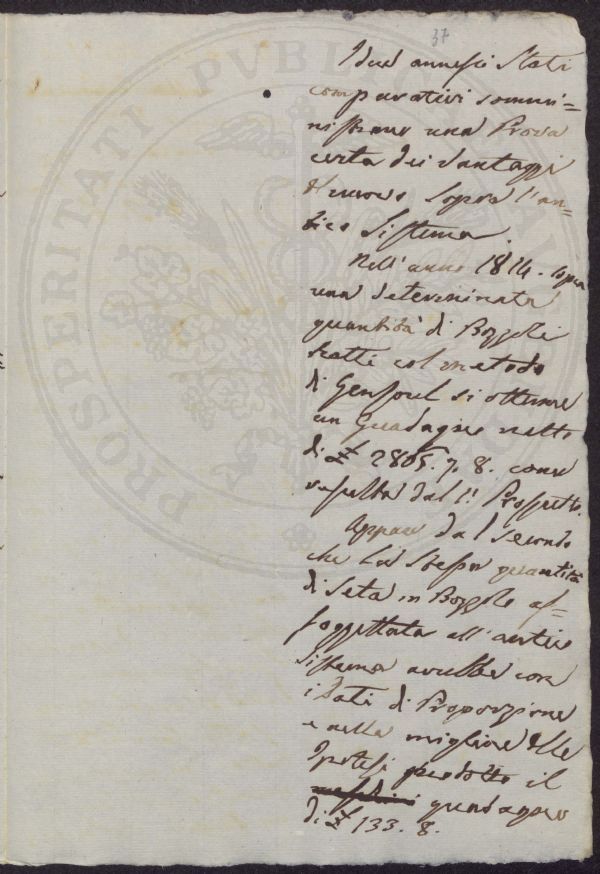 37
I due annessi Stati
comparativi sommi=
nistrano una Prova
certa dei Vantaggi
del nuovo sopra l'an=
tico Sistema.
Nell'anno 1814. sopra
una determinata
quantità di Bozzoli
tratti col metodo
di Gensoul si ottenne
un Guadagno netto
di £ 2805. 7. 8. come
risulta dal 1.º Prospetto.
Appare dal secondo
che la stessa quantità
di Seta in Bozzoli as=
soggettata all'antico
Sistema avrebbe con
i Dati di Proporzione
e nella migliore delle
Ipotesi prodotto il
guadagno
di £ 133. 8.
PROSPERITATI PVBLICAE